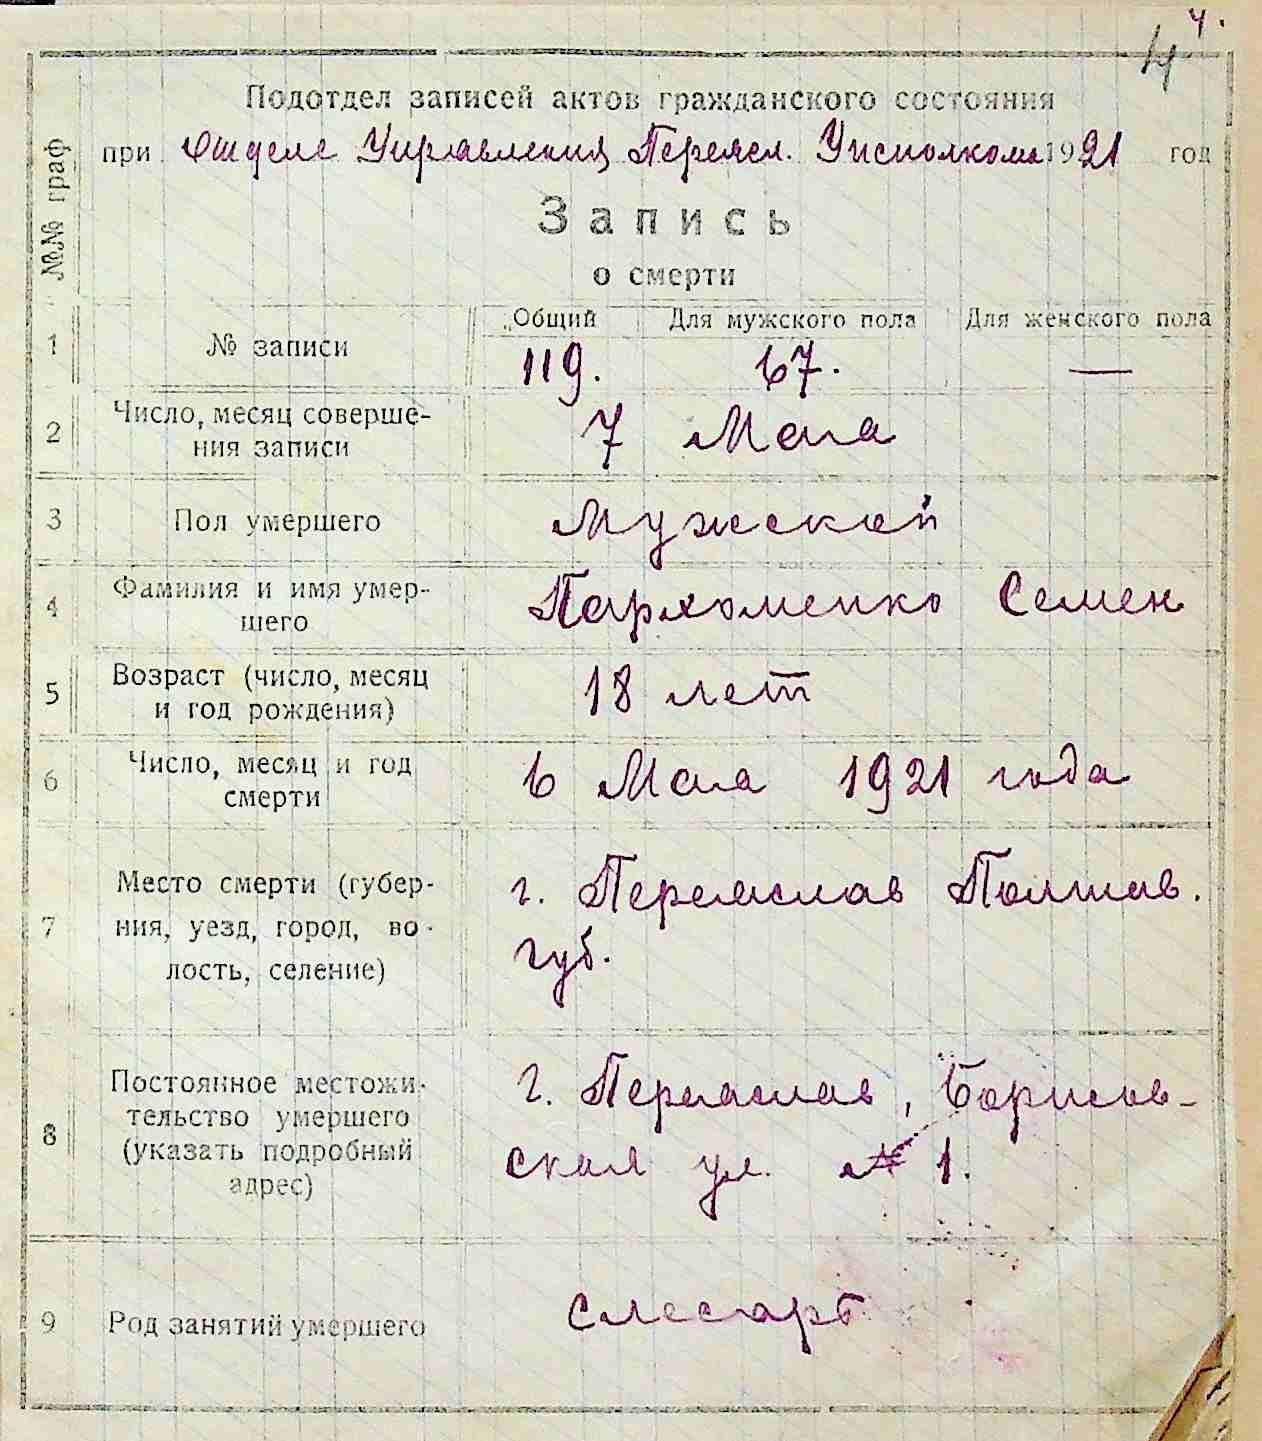 4.
4
Подотдел записей актов гражданского состояния
при Отделе Управления Переясл. Уисполкома 1921 год
№№ граф
Запись
о смерти
1 № записи
„Общий Для мужского пола Для женского пола
119. 67. —
2 Число, месяц соверше-
ния записи
7 Мая
3 Пол умершего Мужской
4 Фамилия и имя умер-
шего
Пархоменко Семен
5 Возраст (число, месяц
и год рождения)
18 лет
6 Число, месяц и год
смерти
6 Мая 1921 года
7 Место смерти (губер-
ния, уезд, город, во-
лость, селение)
г. Переяслав Полтав.
губ.
8 Постоянное местожи-
тельство умершего
(указать подробный
адрес)
г. Переяслав, Борисов-
ская ул. № 1.
9 Род занятий умершего слесарь